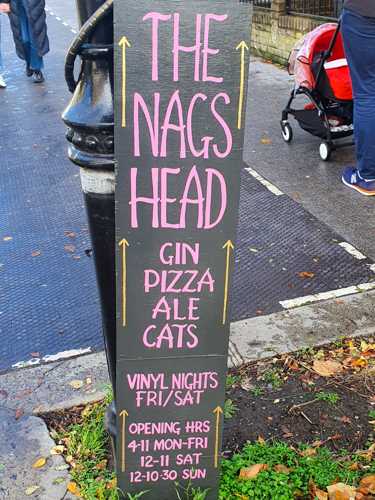 THE
NAGS
HEAD
GIN
PIZZA
ALE
CATS
VINYL NIGHTS
FRI/SAT
OPENING HRS
4-11 MON-FRI
12-11 SAT
12-10·30 SUN